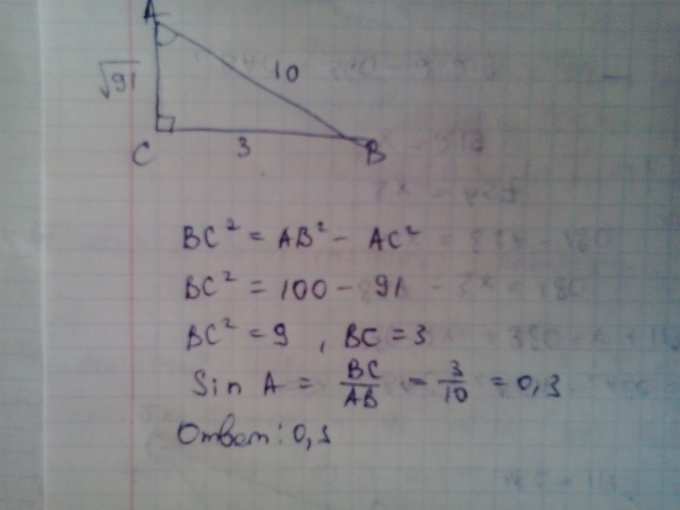 A
√91
10
C
3
B
BC² = AB² - AC²
BC² = 100 - 91
BC² = 9 , BC = 3
Sin A = BC/AB = 3/10 = 0,3
Ответ: 0,3